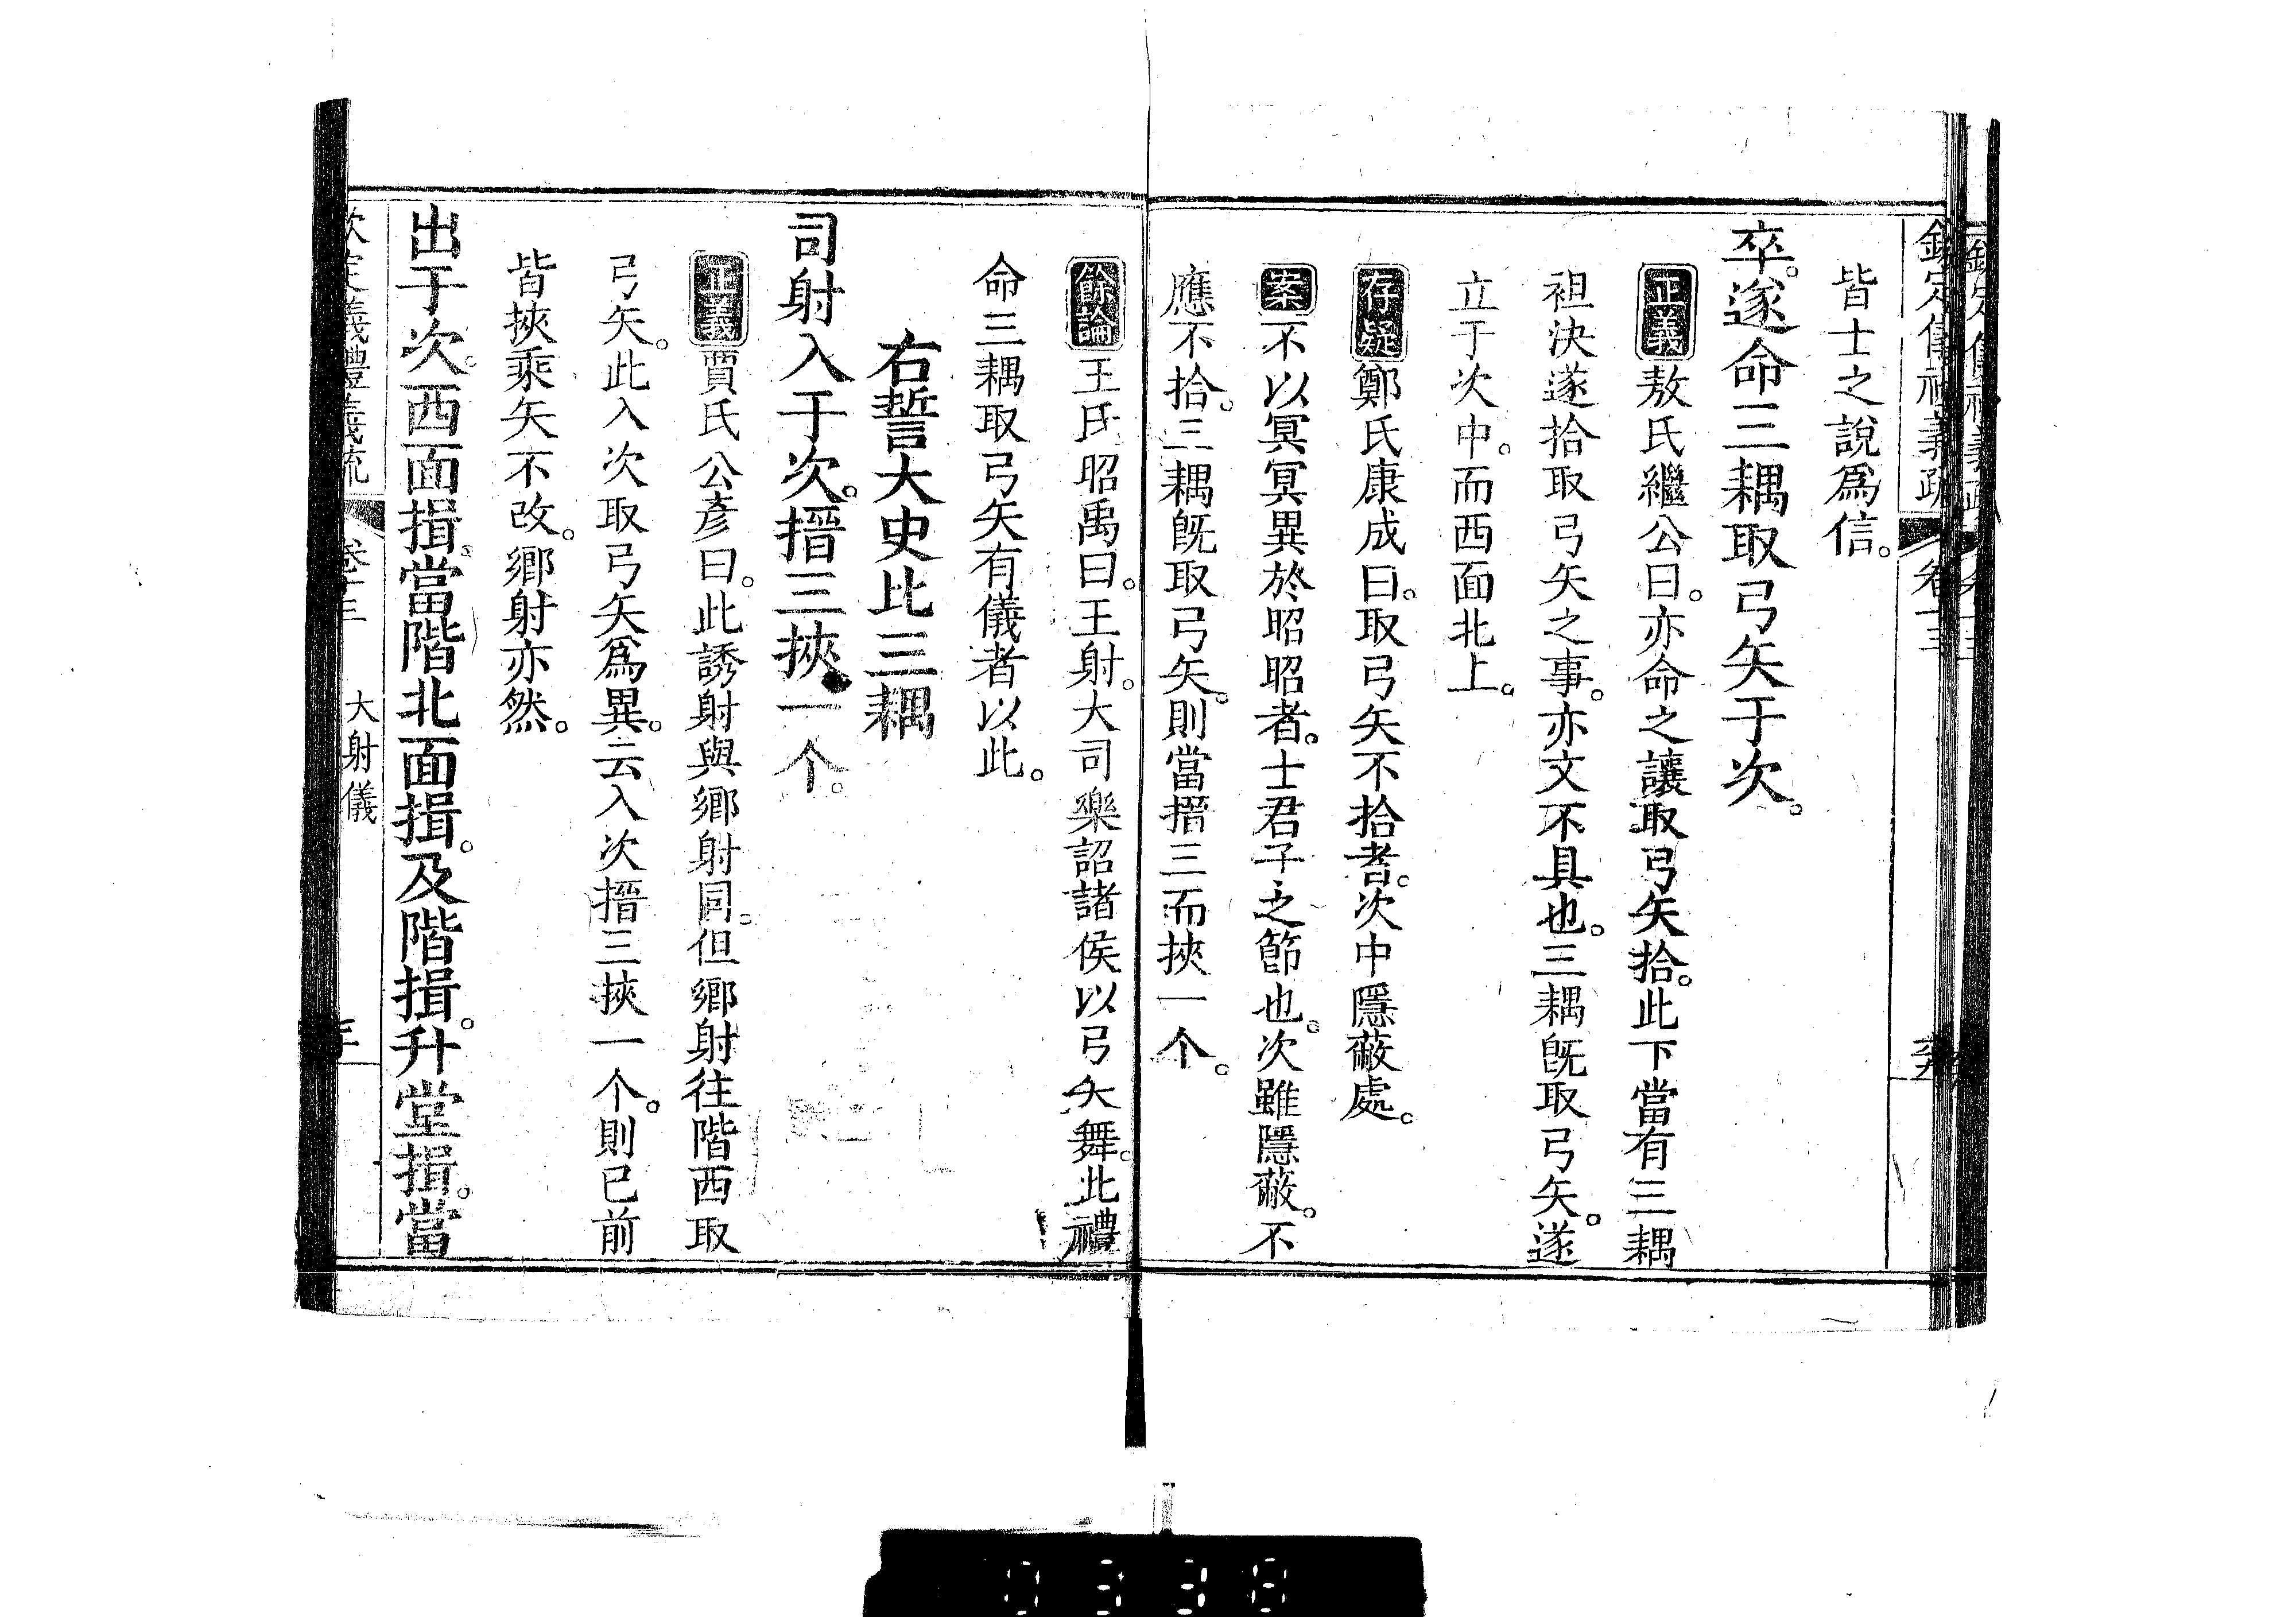 皆士之說爲信。
卒。遂命三耦取弓矢于次。
正義敖氏繼公曰。亦命之讓取弓矢拾。此下當有三耦
袒決遂拾取弓矢之事。亦文不具也。三耦旣取弓矢。遂
立于次中。而西面北上。
存疑鄭氏康成曰。取弓矢不拾者。次中隱蔽處。
案不以冥冥異於昭昭者。士君子之節也。次雖隱蔽。不
應不拾。三耦旣取弓矢。則當搢三而挾一个。
餘論王氏昭禹曰。王射。大司樂詔諸侯以弓矢舞。此禮
命三耦取弓矢有儀者以此。
右誓大史比三耦
司射入于次。搢三挾一个。
正義賈氏公彥曰。此誘射與鄉射同。但鄉射往階西取
弓矢。此入次取弓矢爲異。云入次搢三挾一个。則已前
皆挾乘矢不改。鄉射亦然。
出于次。西面揖。當階北面揖。及階揖。升堂揖。當
欽定義禮義疏 卷十三 大射儀
0338